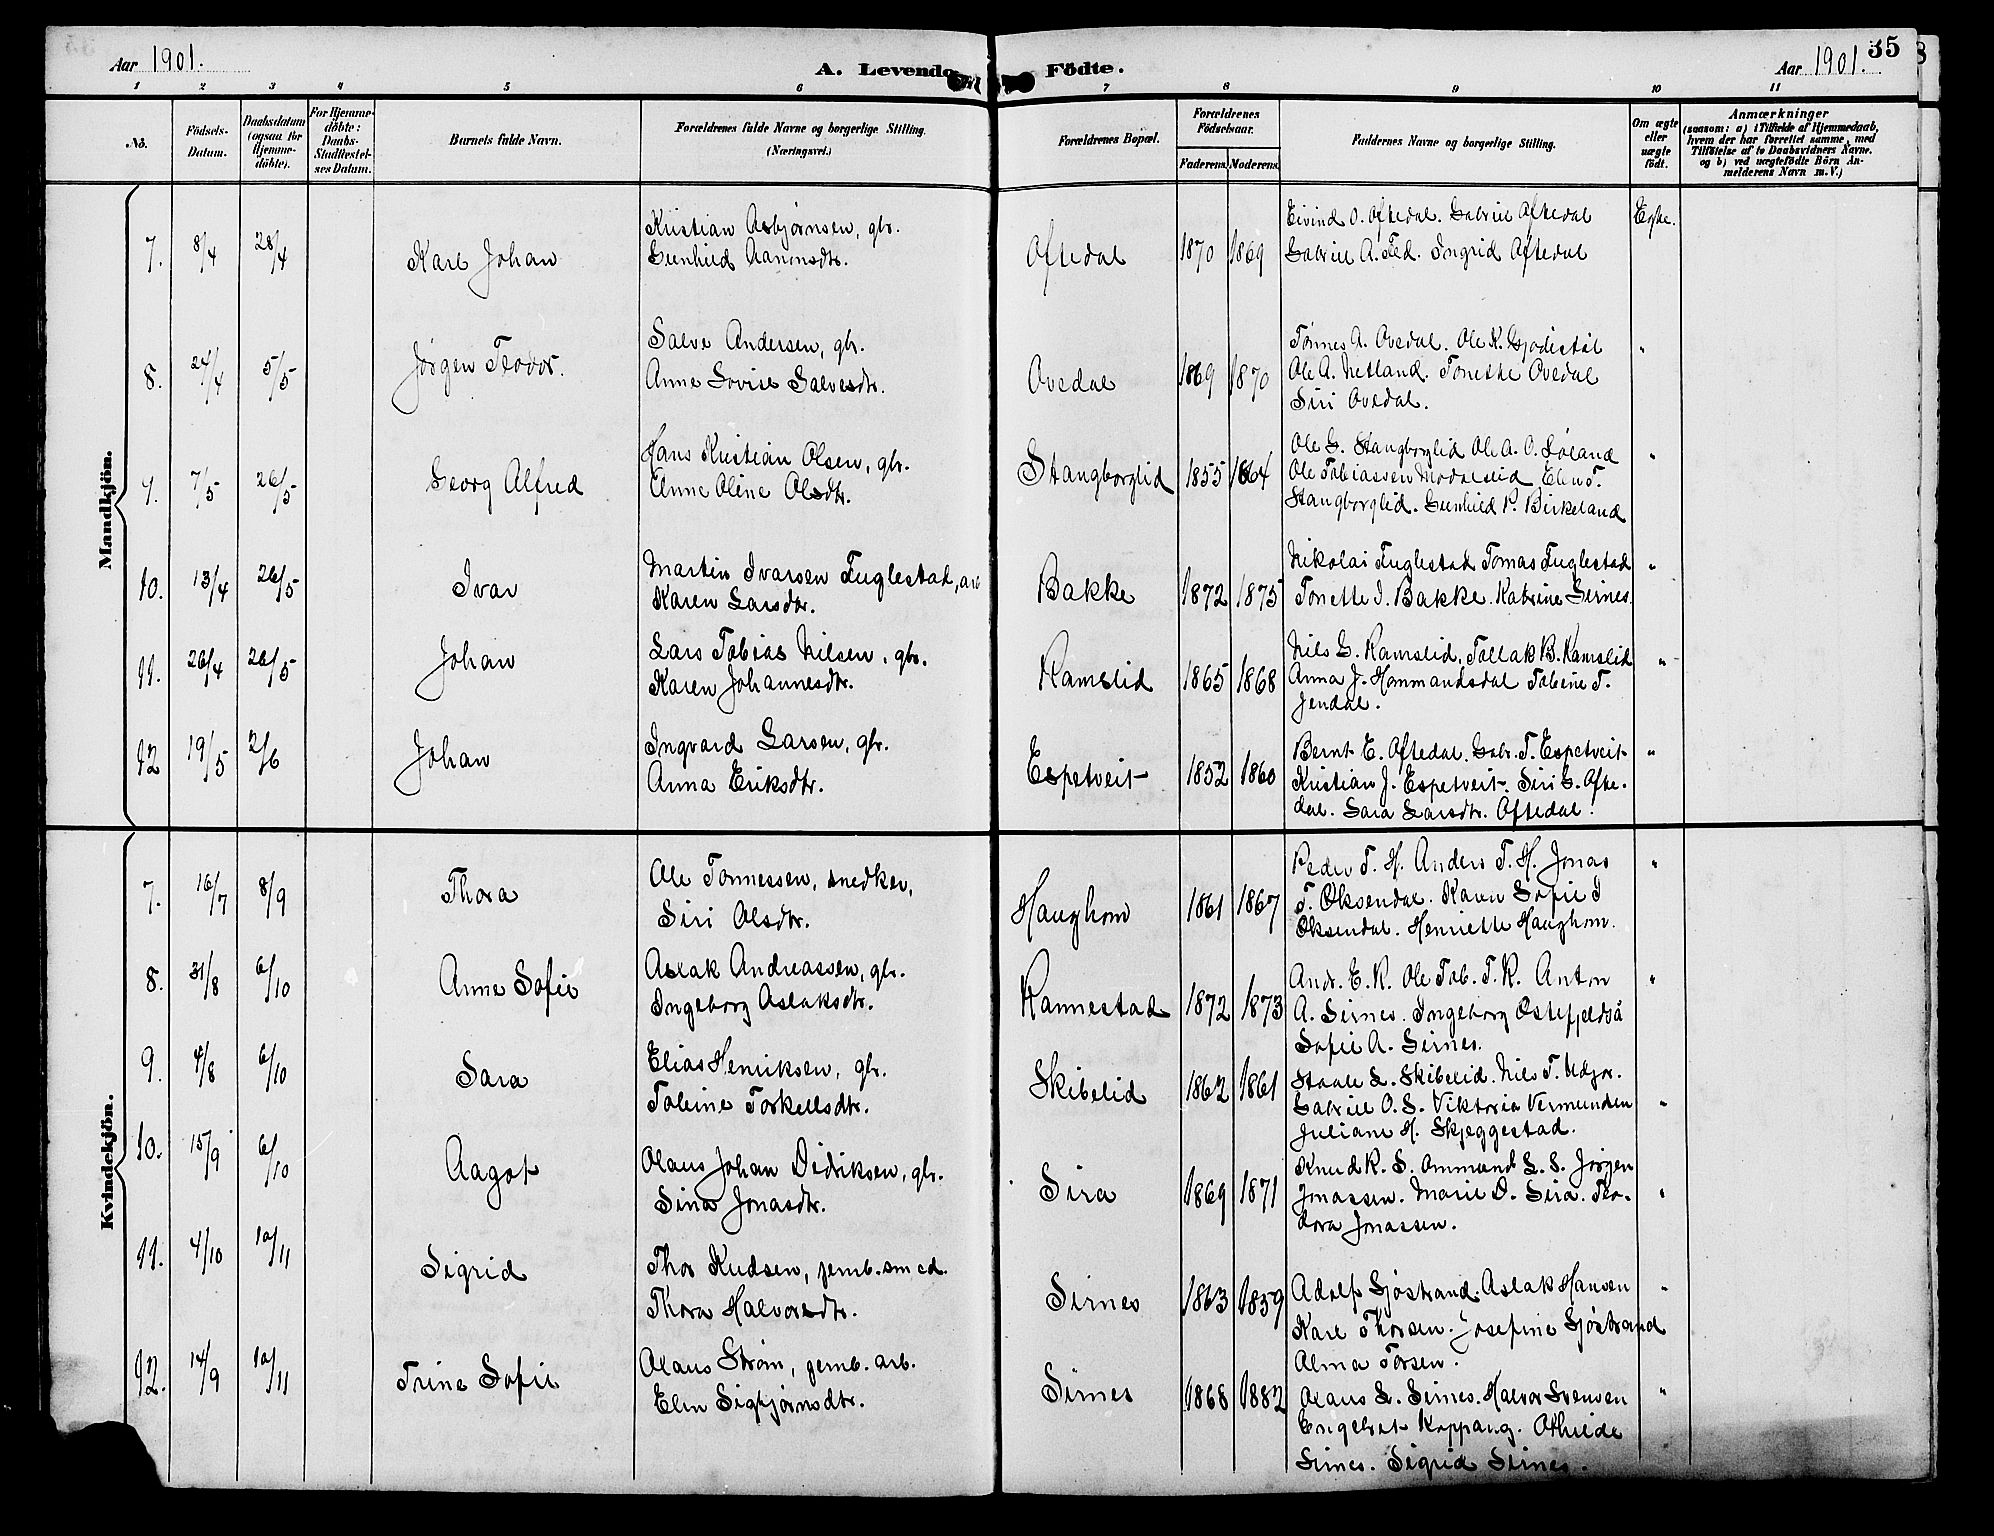 Aar 1901.
A. Levende
Födte.
Aar 1901.
35
1 2 3 4 5 6 7 8 9 10 11
No.
Födsels-
Datum.
Daabsdatum
(ogsaa for
Hjemme-
döbte).
For Hjemme-
döbte:
Daabs-
Stadfæstel-
ses Datum.
Barnets fulde Navn.
Forældrenes fulde Navne og borgerlige Stilling.
(Næringsvei.)
Forældrenes Bopæl.
Forældrenes
Födselsaar.
Faderens. Moderens.
Faddernes Navne og borgerlige Stilling.
Om ægte
eller
uægte
födt.
Anmærkninger
(saasom: a) i Tilfælde af Hjemmedaab,
hvem der har forrettet samme, med
Tilföielse af to Daabsvidners Navne.
og b) ved uægtefödte Börn An-
melderens Navn m.V.)
Mandkjön.
7. 8/4 28/4 Karl Johan
Kristian Asbjørnsen, gbr.
Gunhild Aanensdtr.
Oftedal 1870 1869
Eivind O. Oftedal. Gabriel Oftedal
Gabriel A. Fed. Ingrid Oftedal
Egte.
8. 24/4 5/5 Jørgen Teodor.
Salve Andersen, gbr.
Anne Lovise Salvesdtr.
Ovedal 1869 1870
Tønnes A. Ovedal. Ole K. Gjodestöl
Ole A. Netland. Tonette Ovedal
Siri Ovedal.
"
9. 7/5 26/5 Georg Alfred
Hans Kristian Olsen, gbr.
Anne Oline Olsdtr.
Stangborglid 1855 1864
Ole G. Stangborglid Ole A. O. Løland
Ole Tobiassen Modalslid Elen T.
Stangborglid. Gunhild P. Birkeland
"
10. 13/4 26/5 Ivar
Martin Ivarsen Fuglestad, arb
Karen Larsdtr.
Bakke 1872 1875
Nikolai Fuglestad Tomas Fuglestad
Tonette I. Bakke. Katrine Sirnes.
"
11. 26/4 26/5 Johan
Lars Tobias Nilsen, gbr.
Karen Johannesdtr.
Ramslid 1865 1868
Nils G. Ramslid, Tollak B. Ramslid
Anna J. Hommandsdal Tobine T.
Jendal.
"
12 19/5 2/6 Johan
Ingvard Larsen, gbr.
Anna Eriksdtr.
Espetveit 1852 1860
Bernt E. Oftedal. Gabr. T. Espetveit
Kristian J. Espetveit. Siri G. Ofte-
dal. Sara Larsdtr. Oftedal.
"
Kvindekjön.
7. 16/7 8/9 Thora
Ole Tønnessen, snedker,
Siri Olsdtr.
Haughom 1861 1867
Peder T. H. Anders T. H. Jonas
T. Øksendal. Karen Sofie I
Øksendal. Henriette Haughom.
"
8. 31/8 6/10 Anne Sofie
Aslak Andreassen, gbr.
Ingeborg Aslaksdtr.
Rannestad 1872 1873
Andr. E. R. Ole Tob. T. R. Anton
A. Sirnes. Ingeborg Østefjeldså
Sofie A. Sirnes.
"
9. 4/8 6/10 Sara
Elias Henriksen, gbr.
Tobine Torkellsdtr.
Skibelid 1862 1861
Staale L. Skibelid. Nils T. Udjor.
Gabriel O. S. Viktoria Vermunden
Juliane H. Skjeggestad.
"
10. 15/9 6/10 Aagot
Olaus Johan Didriksen, gbr.
Sina Jonasdtr.
Sira 1869 1871
Knud R. S. Ommund L. S. Jørgen
Jonassen. Marie D. Sira. Teo-
dora Jonassen.
"
11. 4/10 10/11 Sigrid
Thor Kudsen, jernb.smed.
Thora Halvorsdtr.
Sirnes 1863 1859
Adolf Sjöstrand. Aslak Hansen
Karl Thorsen. Josefine Sjöstrand
Alma Torsen.
"
12. 14/9 10/11 Trine Sofie
Olaus Strøm, jernb. arb.
Elen Sigbjørnsdtr.
Sirnes 1868 1882
Olaus L. Sirnes. Halvor Svensen
Engebret Koppang. Othilde
Sirnes. Sigrid Sirnes.
"